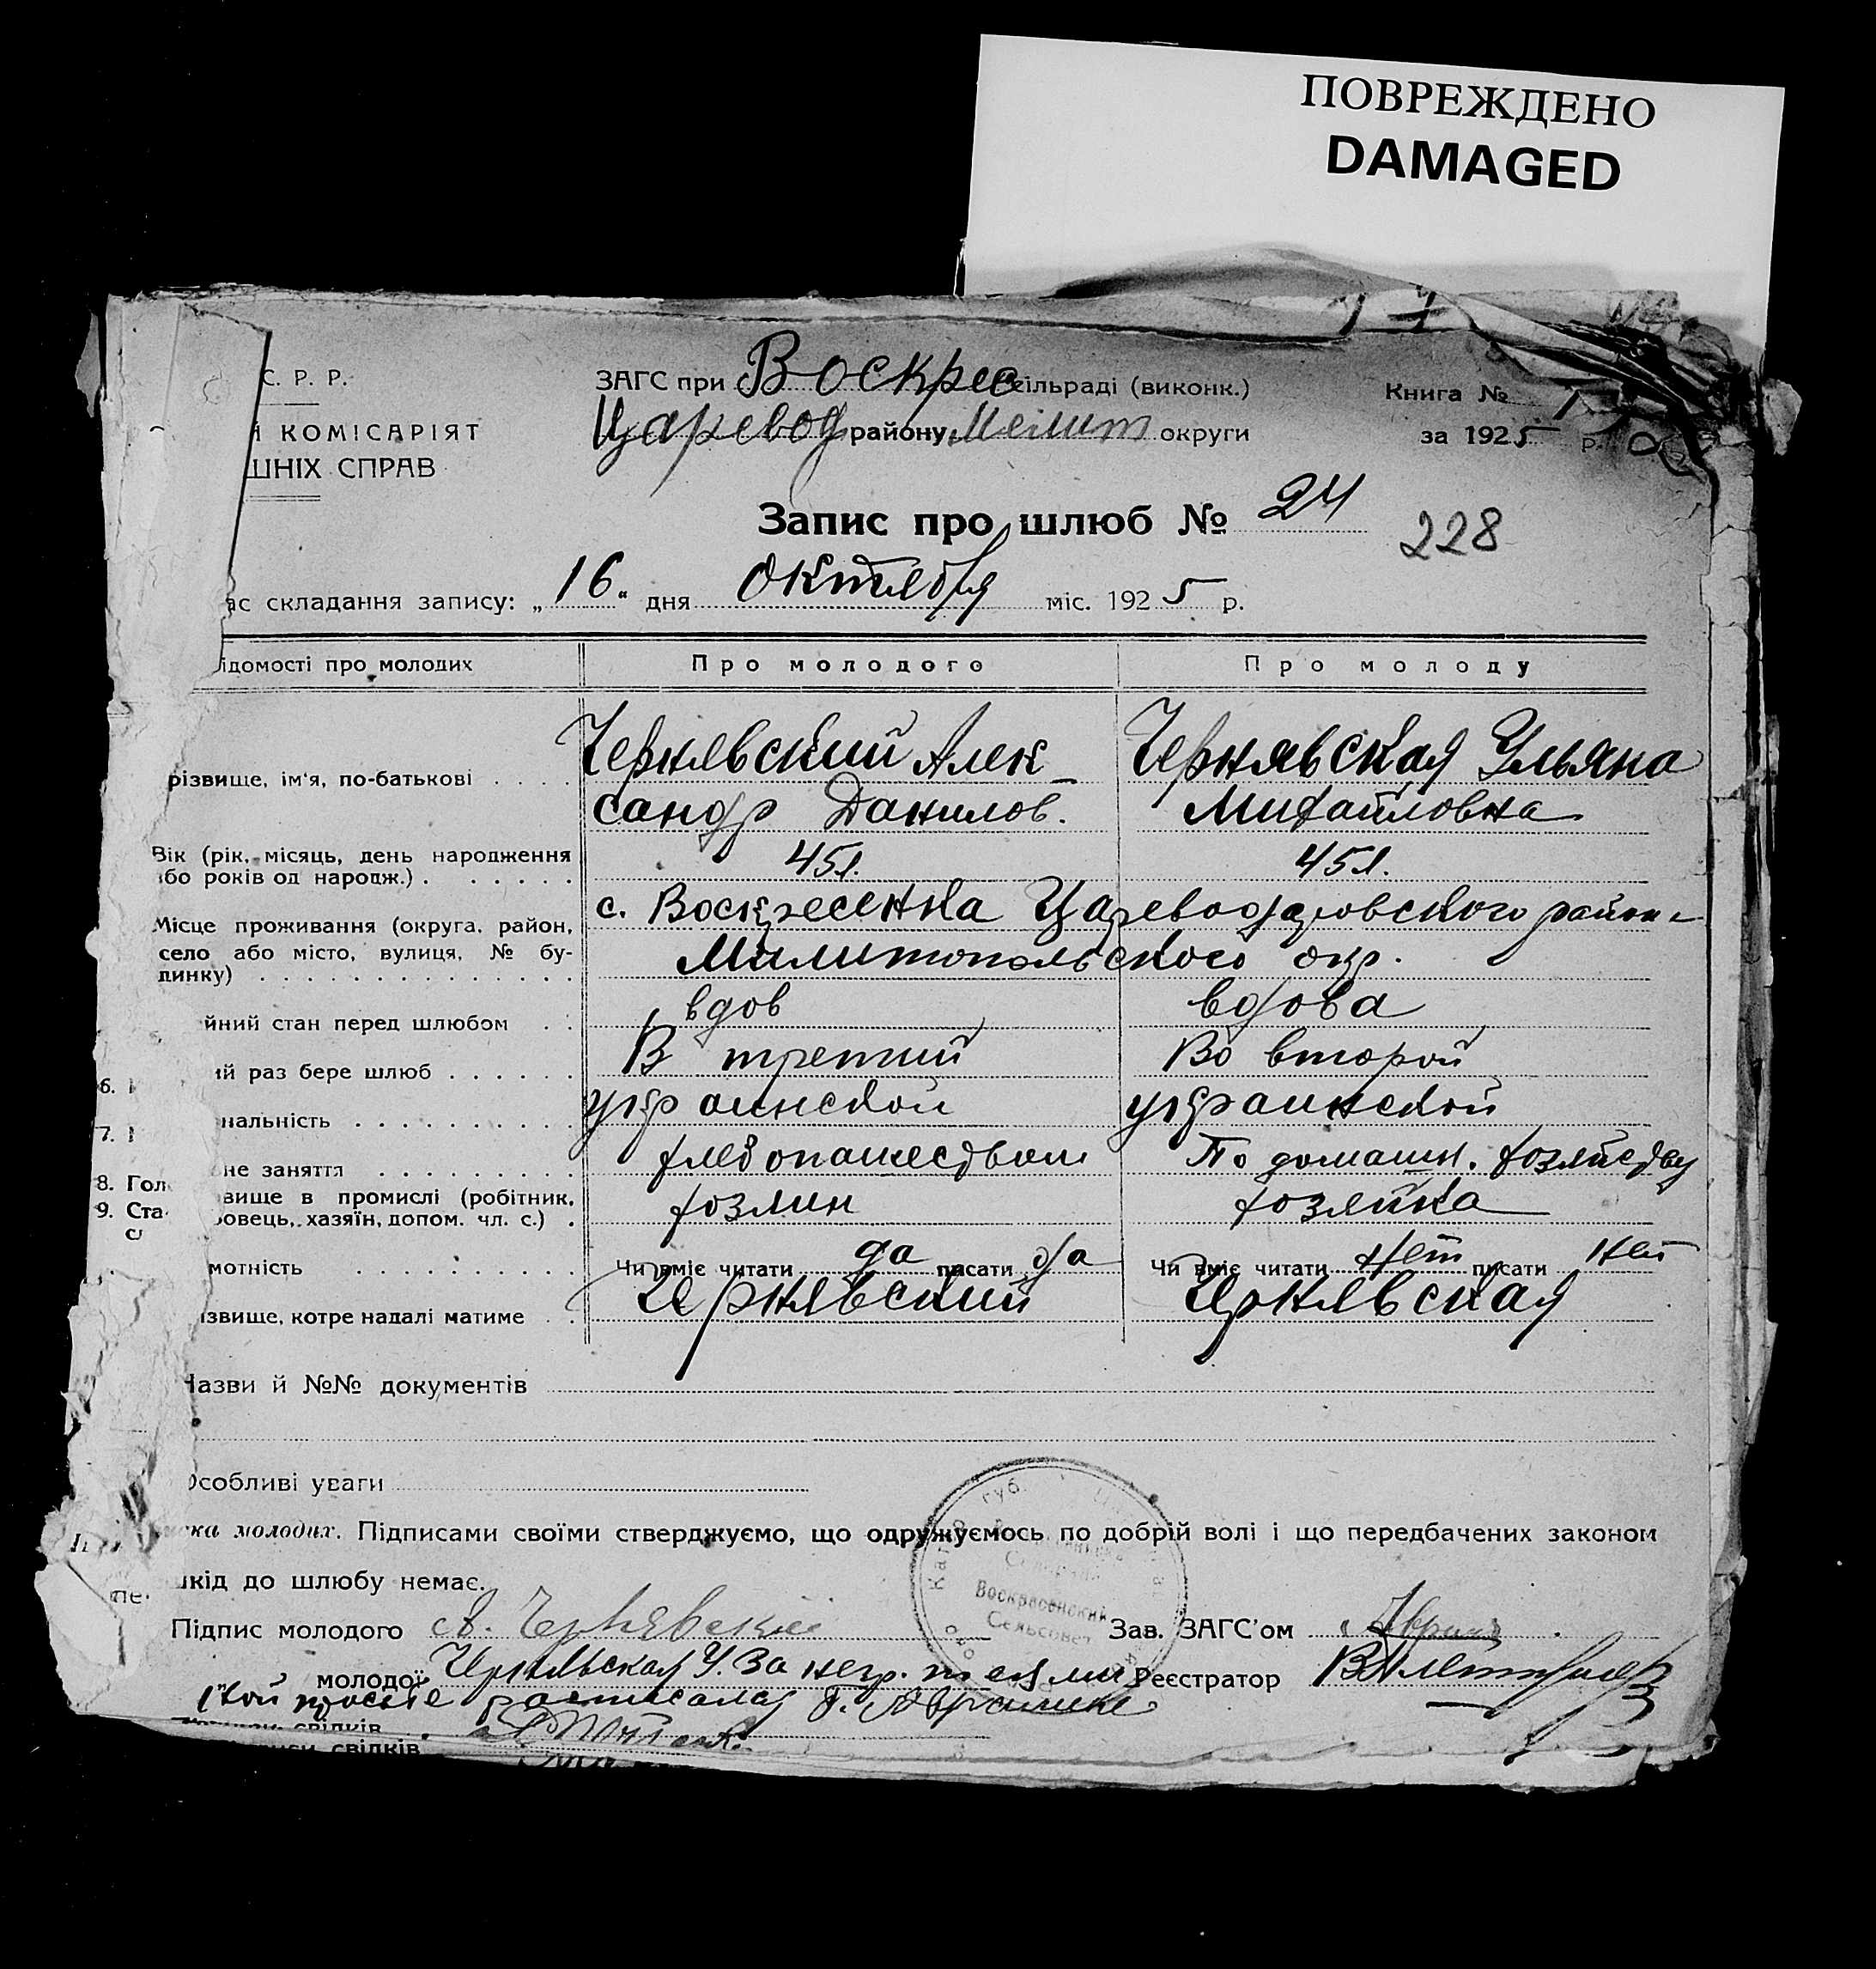 ПОВРЕЖДЕНО
DAMAGED
С. Р. Р.
КОМІСАРІЯТ
ШНІХ СПРАВ
ЗАГС при Воскрес сільраді (виконк.)
Царевод району Мелит округи
Книга № 1
за 1925 р.
Запис про шлюб № 24
228
ас складання запису: „16“ дня октября міс. 1925 р.
ідомості про молодих
Про молодого
Про молоду
різвище, ім'я, по-батькові
Чернявский Алек-
сандр Данилов.
Чернявская Ульяна
Михайловна
Вік (рік, місяць, день народження
або років од народж.)
45 л.
45 л.
Місце проживання (округа, район,
село або місто, вулиця, № бу-
динку)
с. Воскресенка Царевод района
Милитопольского окр.
йний стан перед шлюбом
вдов
вдова
ий раз бере шлюб
В третий
Во второй
6.
нальність
украинской
украинской
7.
не заняття
хлебопашеством
По домашн. хозяйству
8. Гол
вище в промислі (робітник,
9. Ста
овець, хазяїн, допом. чл. с.)
хозяин
хозяйка
мотність
Чи вміє читати да писати да
Чи вміє читати нет писати нет
ізвище, котре надалі матиме
Чернявский
Чернявская
Назви й №№ документів
Особливі уваги
иска молодих. Підписами своїми стверджуємо, що одружуємось по добрій волі і що передбачених законом
шкід до шлюбу немає.
губ.
Воскресенский
Сельсовет
Підпис молодого Чернявский
Зав. ЗАГС'ом
молодої Чернявская У. За негр.
Реєстратор
просьбе расписался
свідків
свідків